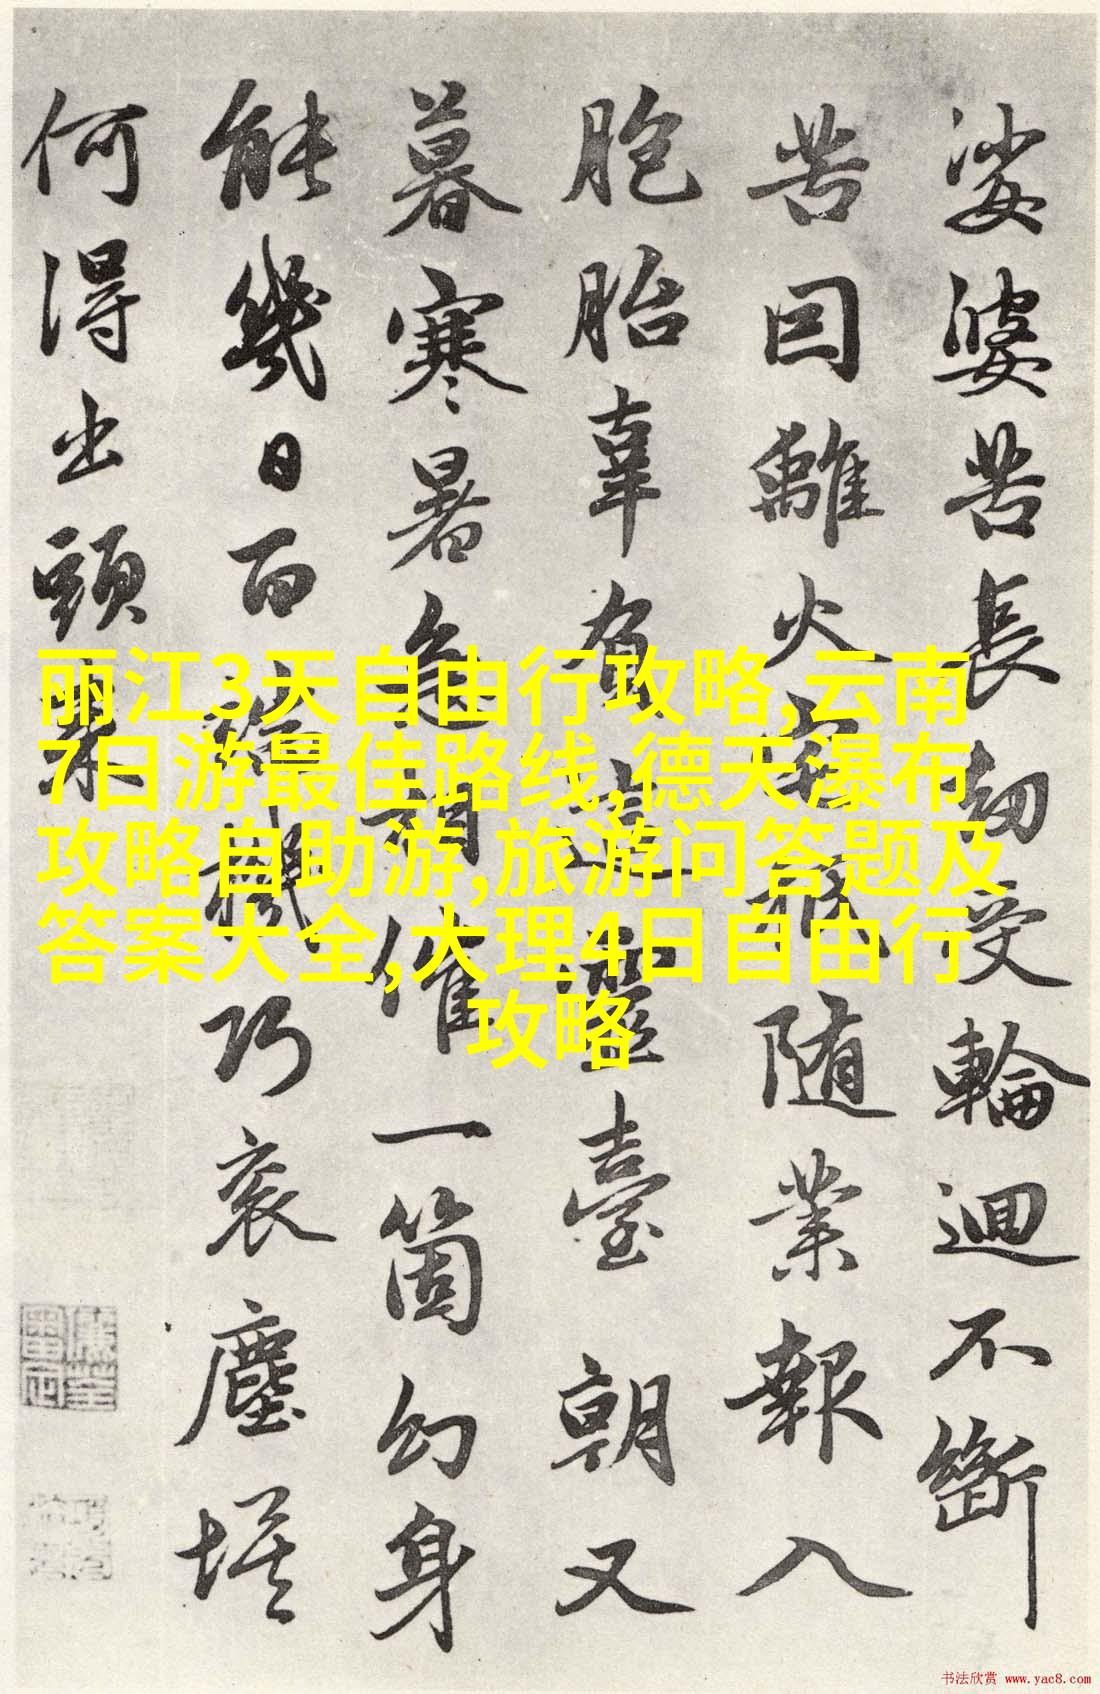 娑婆苦長劫受輪迴不斷
苦因離火宅抵随業報入
胞胎辜負這靈臺朝又
暮寒暑急相催一箇幻身
能幾日百端機巧衮塵埃
何得出頭來
丽江3天自由行攻略,云南
7日游最佳路线,德天瀑布
攻略自助游,旅游问答题及
答案大全,大理4日自由行
攻略
书法欣赏 www.yac8.com